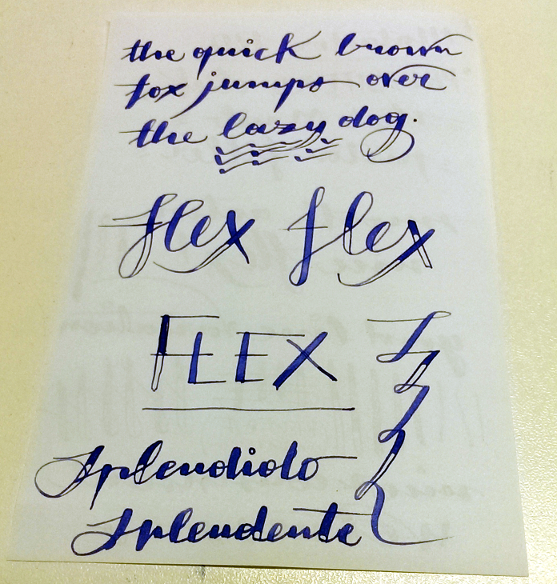 the quick brown
fox jumps over
the lazy dog.
flex flex
FLEX
splendido
splendente